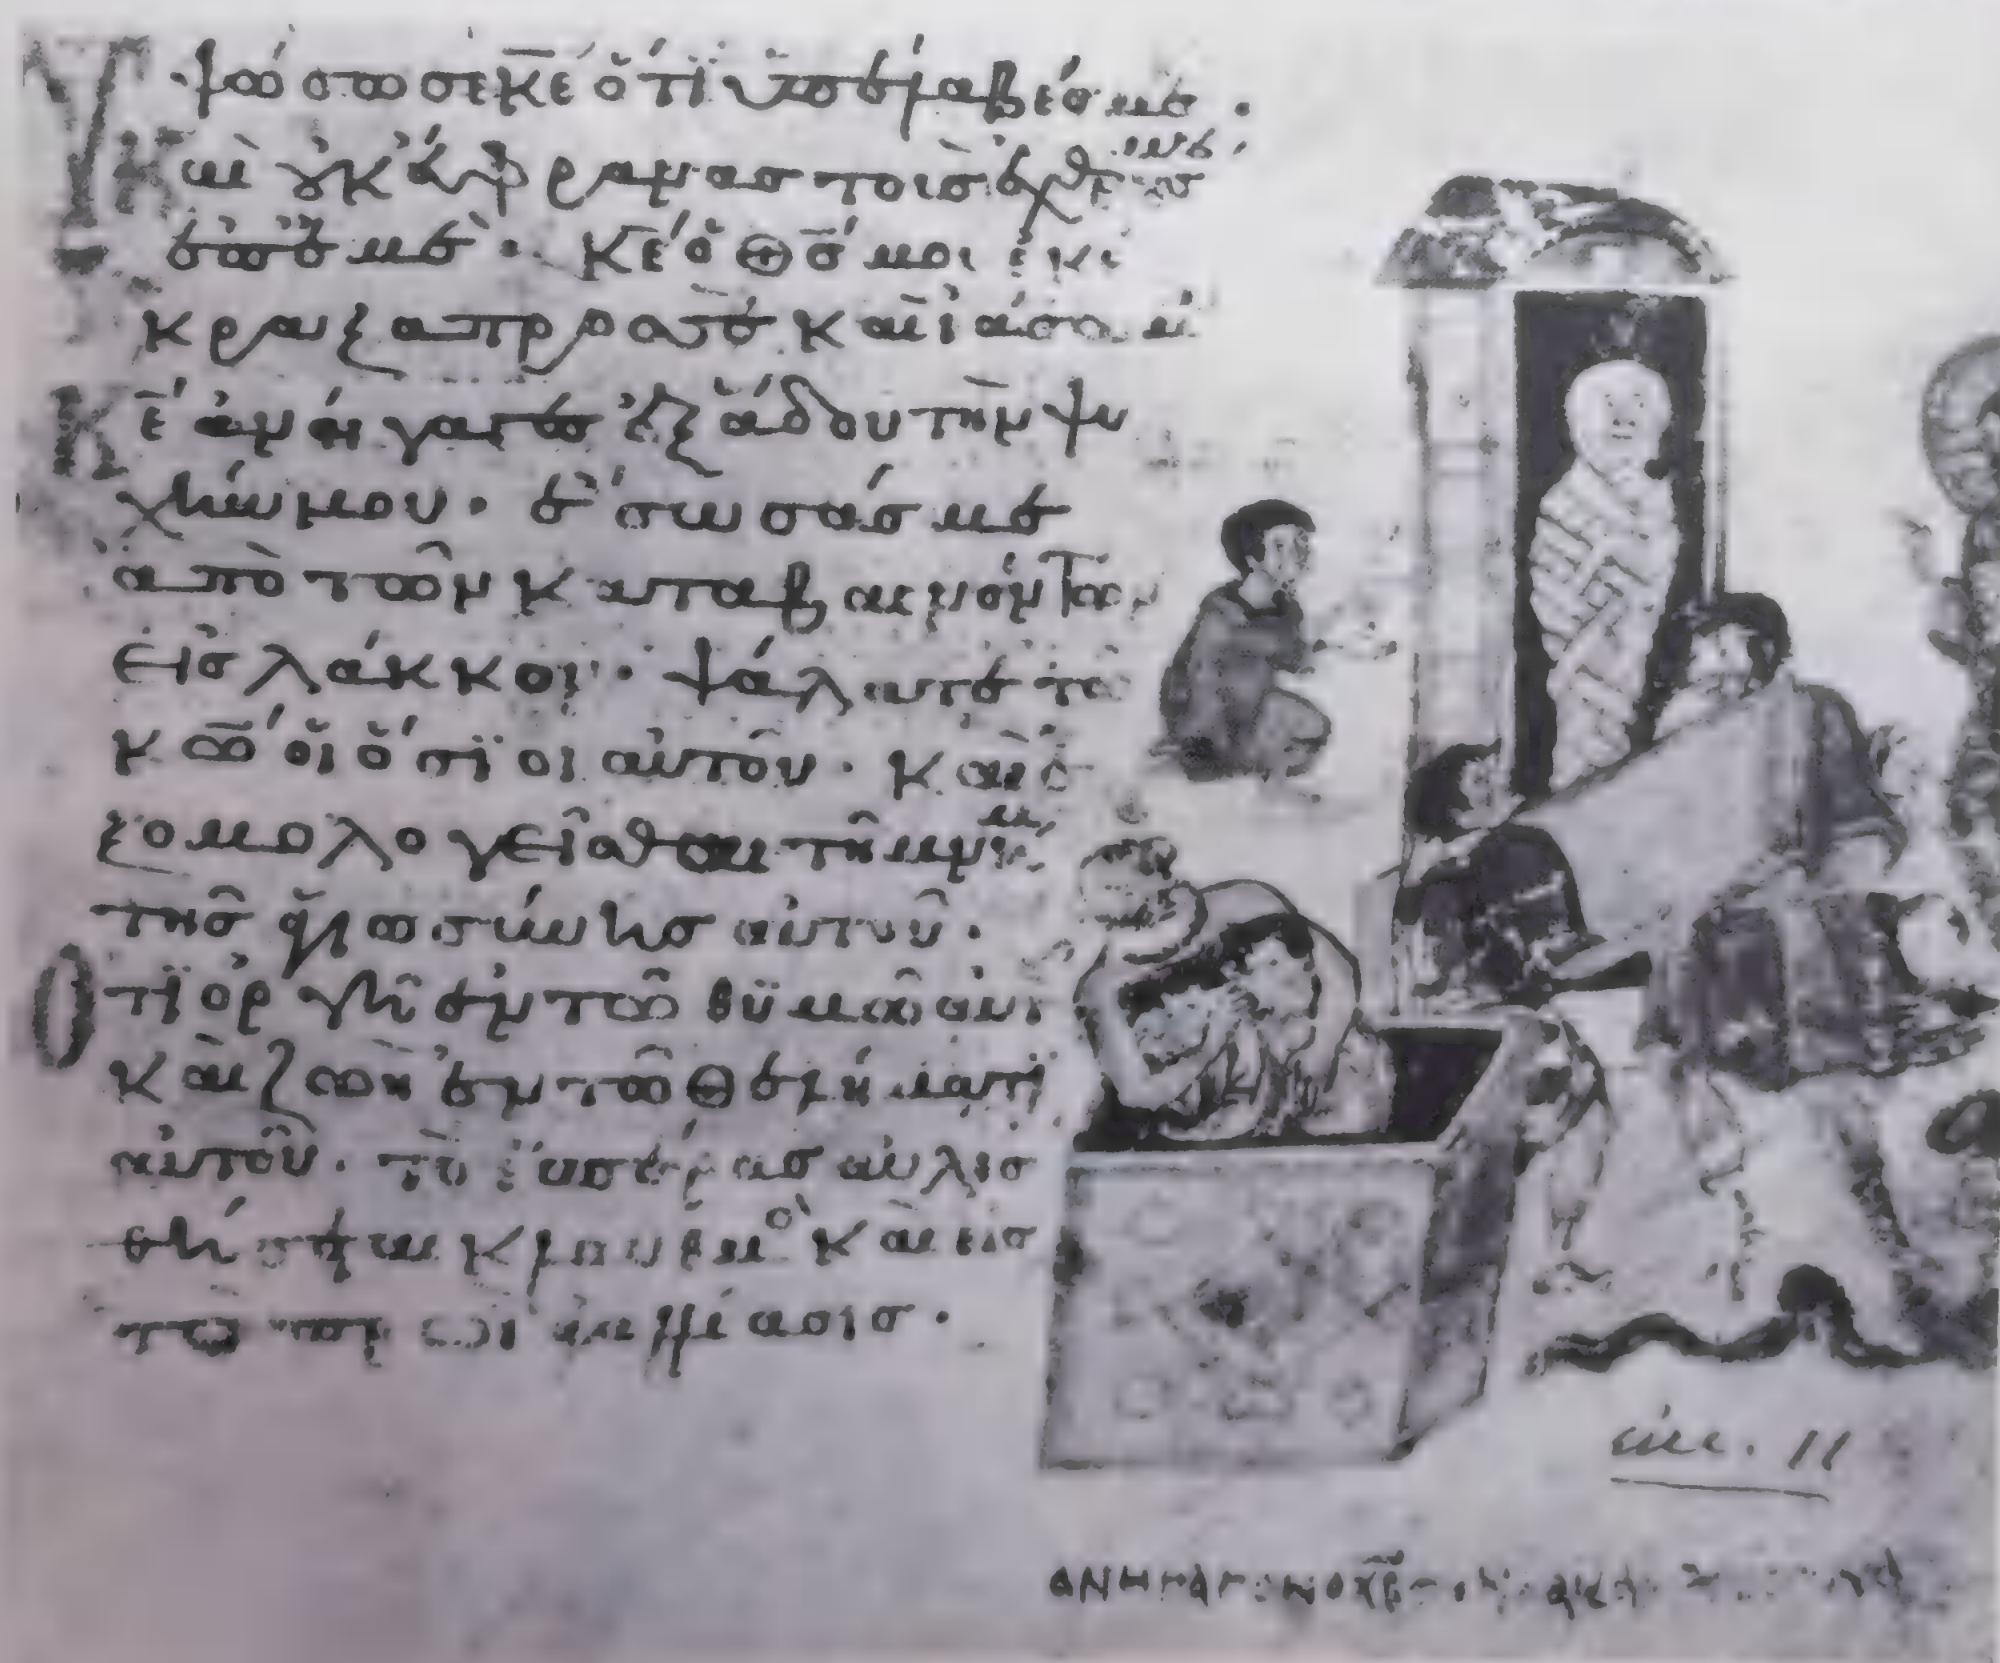 Ὑψώσω σε κε ὅτι ὑπέλαβές με ·
Καὶ οὐκ εὔφρανας τοὺς ἐχθρούς
ἐπ' ἐμέ · κε ὁ θς μου ἐκέ
κραξα πρὸς σέ καὶ ἰάσω με
Κε ἀνήγαγες ἐξ ἅδου τὴν ψυ
χήν μου · ἔσωσάς με
ἀπὸ τῶν καταβαινόντων
εἰς λάκκον · ψάλατε τῶ
κω οἱ ὅσιοι αὐτοῦ · καὶ ἐ
ξομολογεῖσθαι τῆ μνήμη
τῆς ἁγιωσύνης αὐτοῦ ·
Ὅτι ὀργὴ ἐν τῶ θυμῶ αὐτ
καὶ ζωὴ ἐν τῶ θελήματι
αὐτοῦ · τὸ ἑσπέρας αὐλισ
θήσεται κλαυθμὸς καὶ εἰς
τὸ πρωῒ ἀγαλλίασις ·
εἰκ. 11